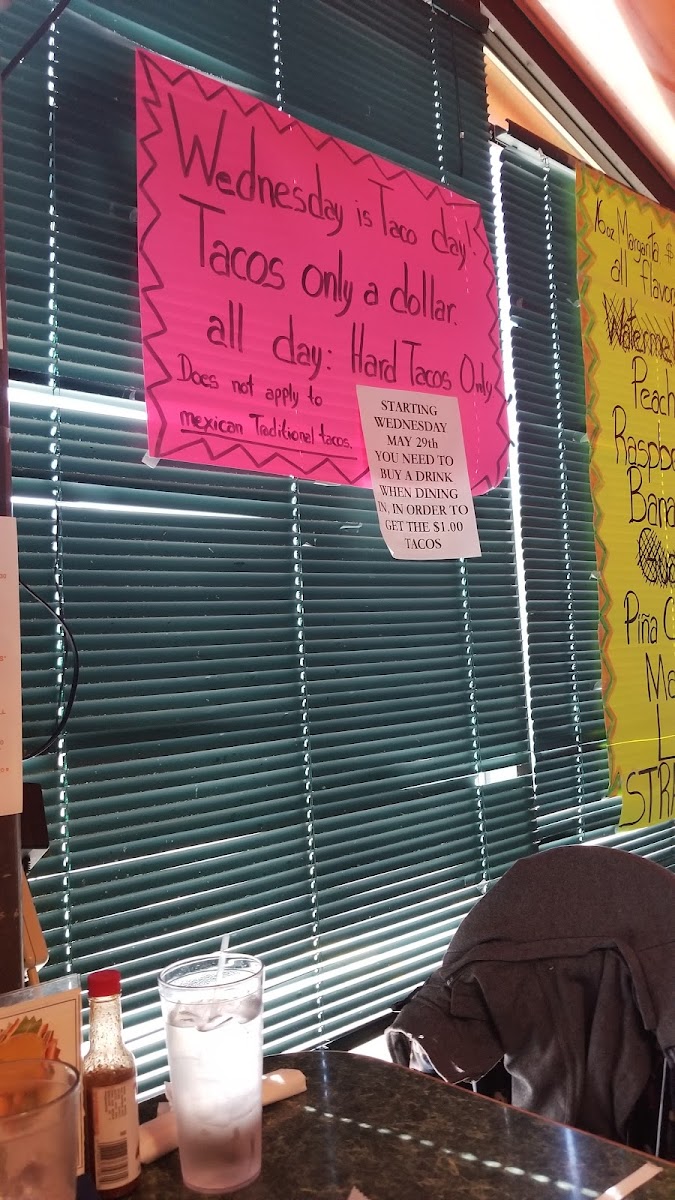 Wednesday is Taco day!
Tacos only a dollar.
all day: Hard Tacos Only
Does not apply to
mexican Traditional tacos.
STARTING
WEDNESDAY
MAY 29th
YOU NEED TO
BUY A DRINK
WHEN DINING
IN, IN ORDER TO
GET THE $1.00
TACOS
16oz Margarita $
all flavors
Peach
Piña